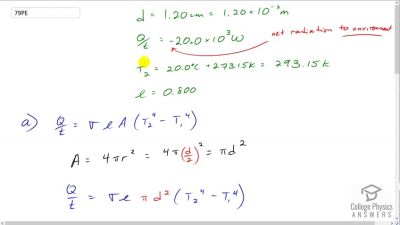 79PE
d = 1.20 cm = 1.20 × 10⁻² m
Q/t = -20.0 × 10³ W
net radiation to environment
T₂ = 20.0°C + 273.15 K = 293.15 K
e = 0.800
a) Q/t = σ e A (T₂⁴ - T₁⁴)
A = 4πr² = 4π(d/2)² = πd²
Q/t = σ e π d² (T₂⁴ - T₁⁴)
College Physics
ANSWERS